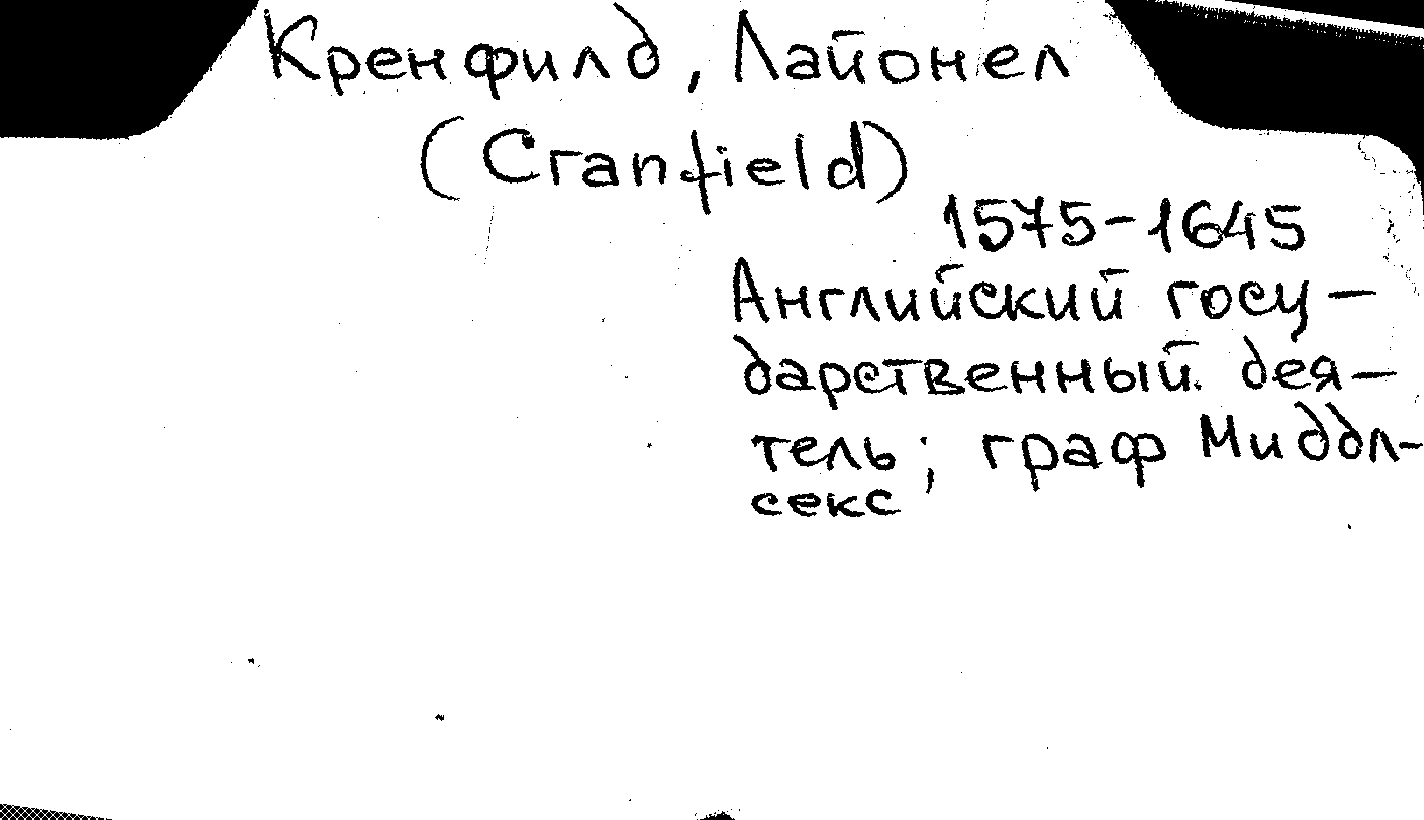 Кренфилд, Лайонел
(Cranfield)
1575-1645
Английский госу-
дарственный дея-
тель; граф Миддл-
секс